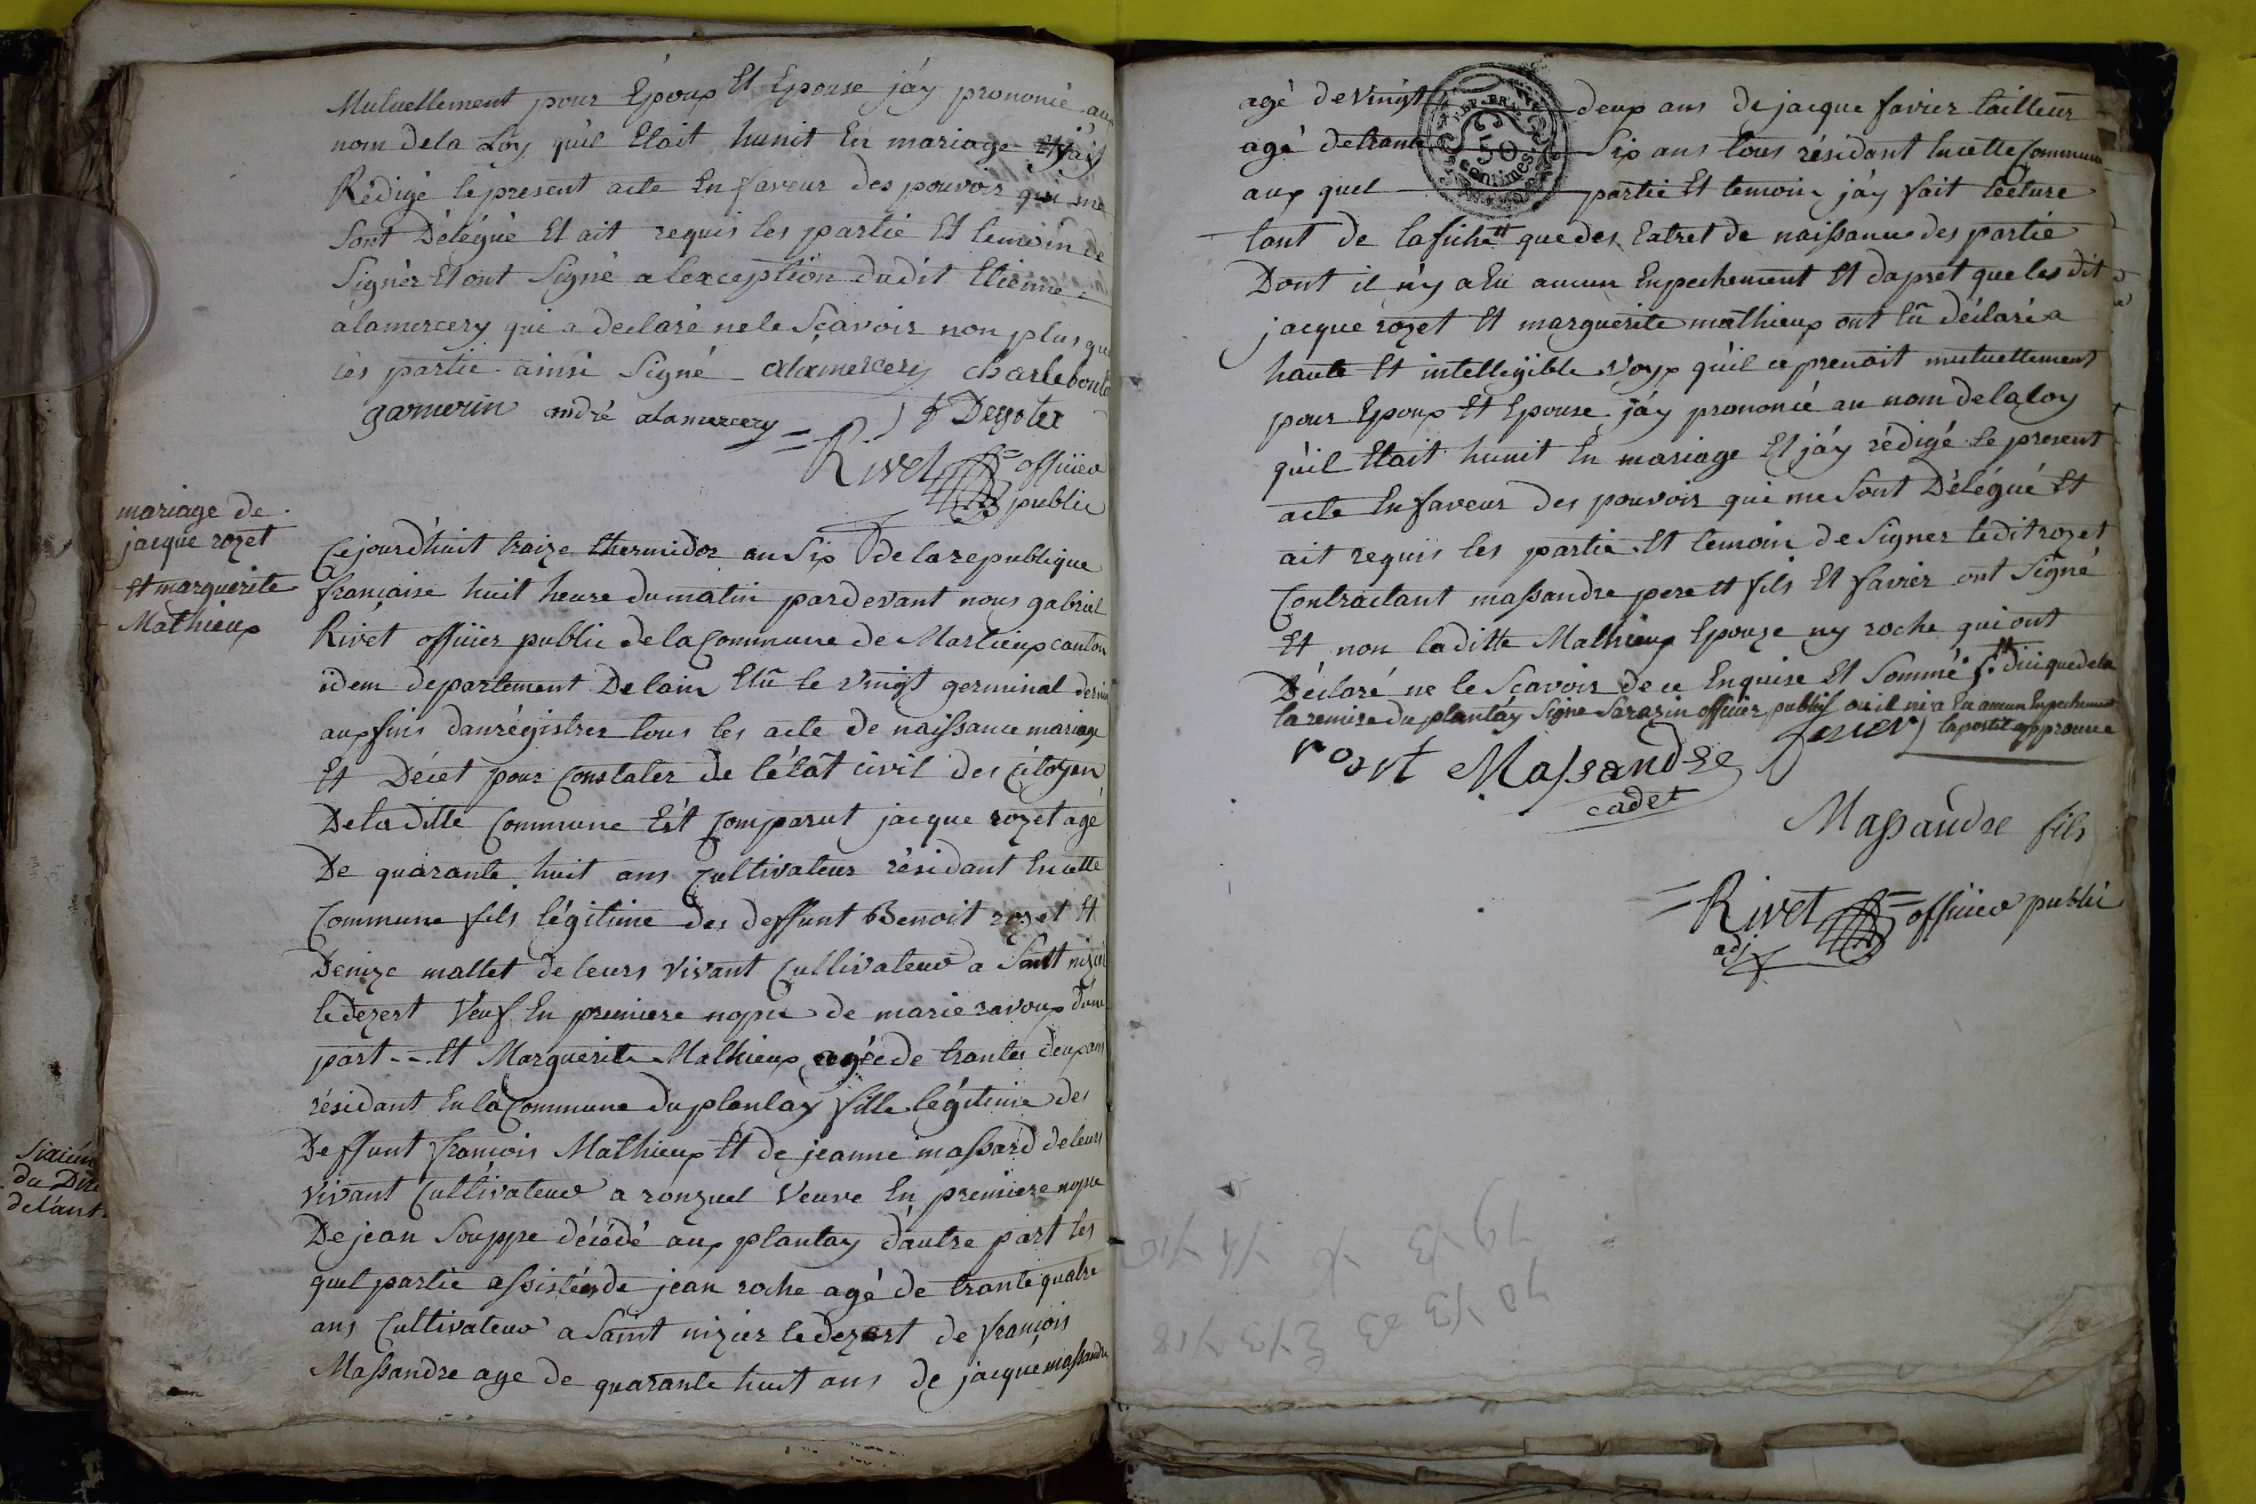 Mutuellement pour Epoux Et Epouse j'ay prononcé au
nom de la Loy quil Etait hunit En mariage Et j'ay
Rédigé le present acte En faveur des pouvoir qui me
Sont Délégué Et ait requis les partié Et temoin de
Signér Et ont Signé a lexception dudit Etienne
alamercery qui a declaré ne le Sçavoir non plus que
les partie ainsi Signé alamercery charle
garnerin andré alamercery
= Rivet = officier
public
mariage de
jacque rozet
Et marguerite
Mathieux
Cejourd'huit traize thermidor an Six de la republique
française huit heure du matin pardevant nous gabriel
Rivet officier public de la Commune de Marlieux canton
idem departement De lain Elû le vingt germinal dernier
aux fins danrégistrer tous les acte de naissance mariage
Et Décet pour Constater de l'état civil des Citoyen
De la ditte Commune Est Comparut jacque rozet agé
De quarante huit ans Cultivateur résidant En cette
Commune fils légitime des deffunt Benoit rozet Et
Denize mallet de leurs vivant Cultivateur a Saint nizier
le dezert Veuf En premiere nopce de marie ravoux d'une
part -- Et Marguerite Mathieux agée de trantes deux ans
résidant En la Commune du plantay fille légitime des
Deffunt françois Mathieux Et de jeanne massard de leurs
vivant Cultivateur a ronzuel Veuve En premiere nopce
De jean Souppe décédé aux plantay d'autre part les
quel partie assistée de jean roche agé de trante quatre
ans Cultivateur a Saint nizier le dezert de françois
Massandre age de quarante huit ans de jacque massandre
Sixiem
du
agé de vingt deux ans de jacque favier tailleur
agé de trante Six ans tous résidant En cette Commune
aux quel partie Et temoin j'ay fait lecture
50
Centimes
tant de lafiche tt que des Extret de naissance des partié
Dont il n'y a Eu aucun Enpechement Et dapret que les dit
jacque rozet Et marguerite mathieux ont Eû déclaré a
haute Et intelligible voyx quil ce prenoit mutuellement
pour Epoux Et Epouse j'ay prononcé au nom de la loy
quil Etait hunit En mariage Et j'ay rédigé le present
acte En faveur des pouvoir qui me Sont Délégué Et
ait requis les partie Et temoin de Signer ledit rozet
Contractant massandre pere Et fils Et favier ont Signé
Et non la ditte Mathieux Epouze ny roche qui ont
Déclaré ne le Sçavoir de ce Enquise Et Sommé f. tt d'ici que de la
la remise du plantay Signe Sarazin officier public ou il ni a Eu aucun Enpechement
la postil approuvé
roset Massandre
cadet
favier
Massandre fils
= Rivet = officier public
adj